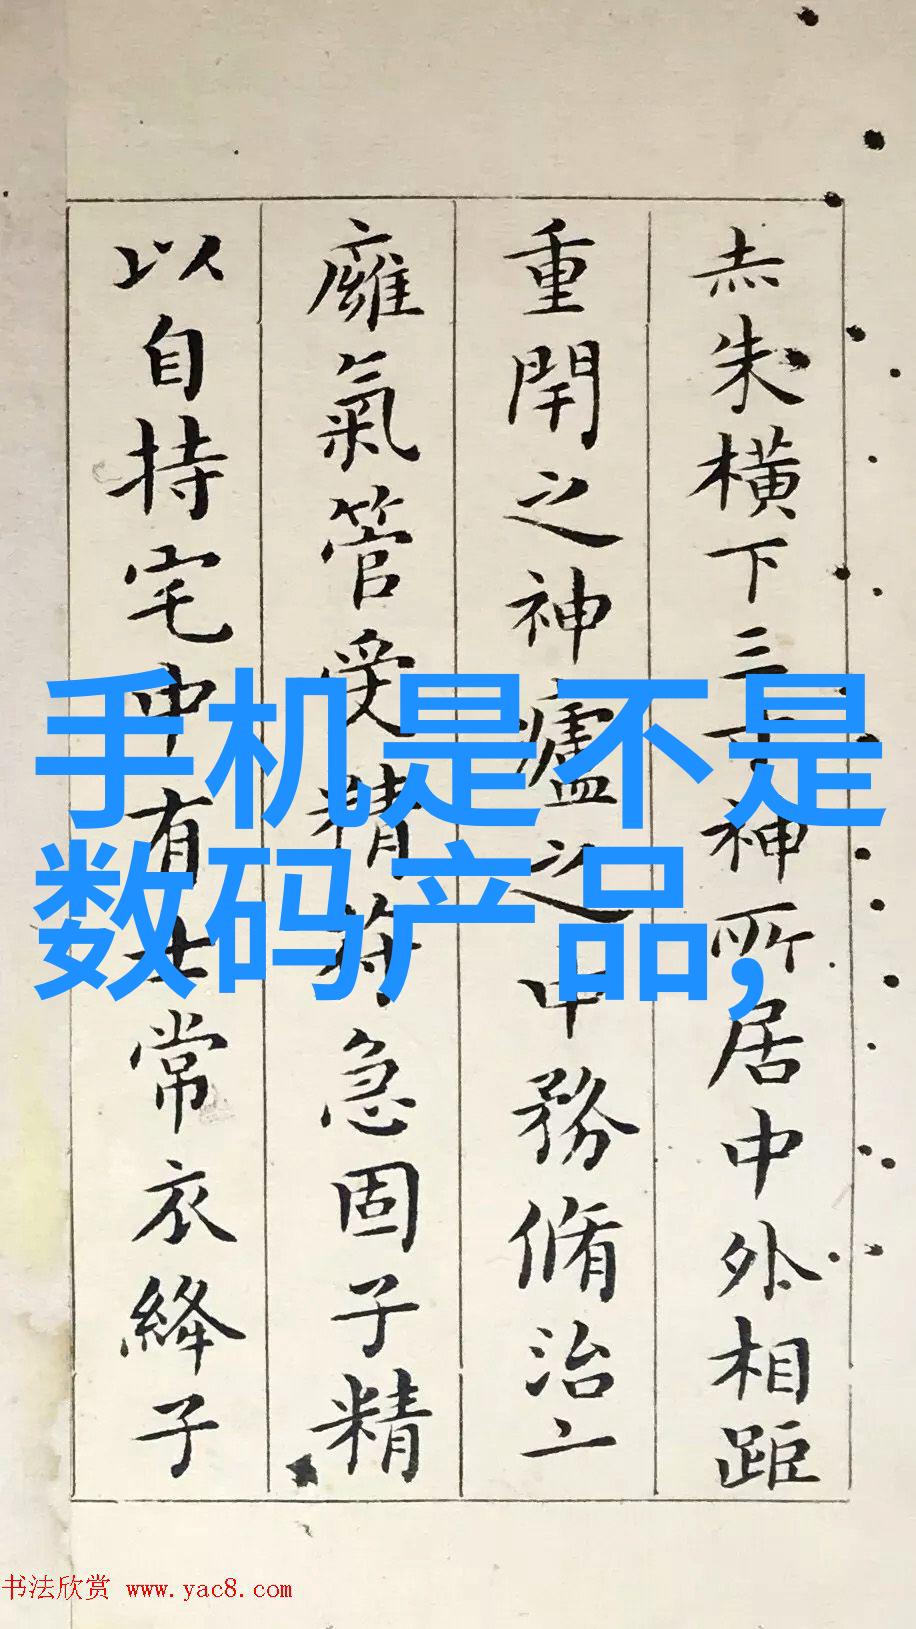 手机是不是
数码产品,
赤朱横下三寸神所居中外相距
重閈之神廬之中務脩治二
廱氣管受精符急固子精
以自持宅中有士常衣絳子
书法欣赏 www.yac8.com